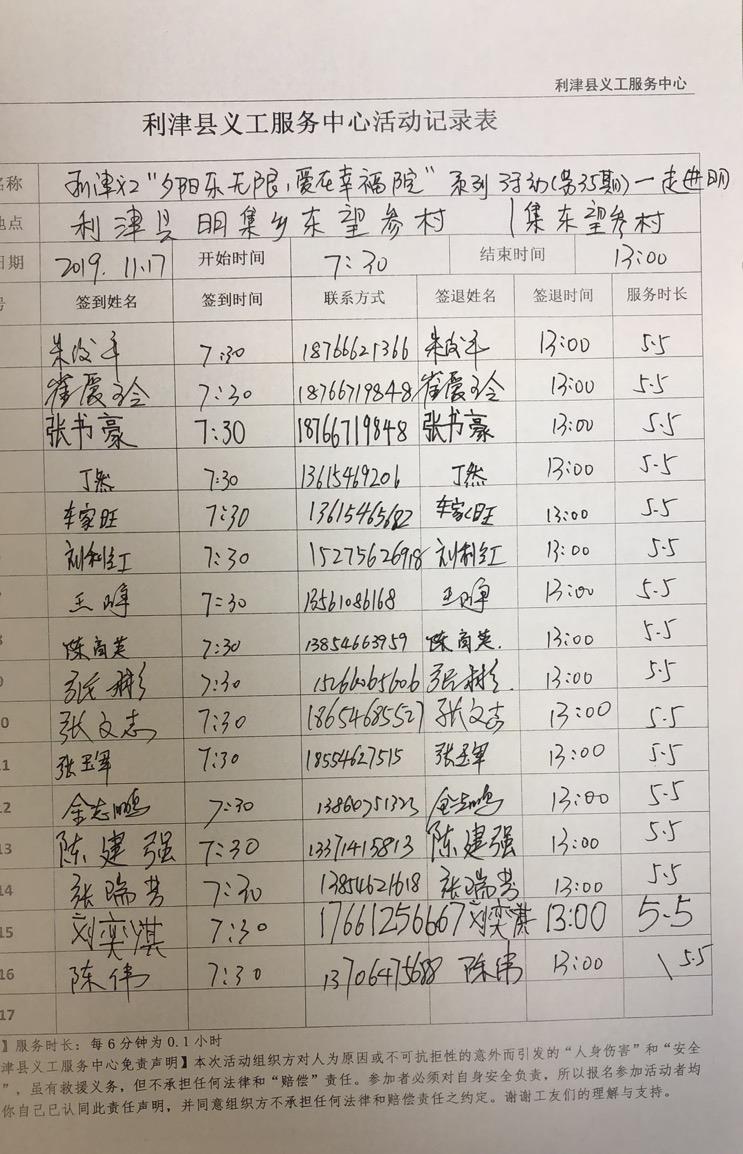 利津县义工服务中心
利津县义工服务中心活动记录表
名称 利津义工"夕阳乐无限,爱在幸福院"系列活动(第35期)一走进明
地点 利津县明集乡东望参村 集东望参村
日期 2019.11.17 开始时间 7:30 结束时间 13:00
号 签到姓名 签到时间 联系方式 签退姓名 签退时间 服务时长
7:30 18766621366 13:00 5.5
崔爱玲 7:30 18766719848 崔爱玲 13:00 5.5
张书豪 7:30 18766719848 张书豪 13:00 5.5
丁然 7:30 13615469206 丁然 13:00 5.5
车家旺 7:30 13615465682 车家旺 13:00 5.5
刘利红 7:30 15275626918 刘利红 13:00 5.5
王 7:30 13561086168 王 13:00 5.5
8 陈商英 7:30 13854663959 陈商英. 13:00 5.5
9 张彬 7:30 15266065606 张彬. 13:00 5.5
10 张文志 7:30 18654685527 张文志 13:00 5.5
11 张玉军 7:30 18554627515 张玉军 13:00 5.5
12 金志鹏 7:30 13860751323 金志鹏 13:00 5.5
13 陈建强 7:30 13371415813 陈建强 13:00 5.5
14 张瑞芳 7:30 13854621618 张瑞芳 13:00 5.5
15 刘奕淇 7:30 17661256667 刘奕淇 13:00 5.5
16 陈伟 7:30 13706475688 陈伟 13:00 5.5
17
】服务时长:每6分钟为0.1小时
津县义工服务中心免责声明】本次活动组织方对人为原因或不可抗拒性的意外而引发的“人身伤害”和“安全
”,虽有救援义务,但不承担任何法律和“赔偿”责任。参加者必须对自身安全负责,所以报名参加活动者均
你自己已认同此责任声明,并同意组织方不承担任何法律和赔偿责任之约定。谢谢工友们的理解与支持。